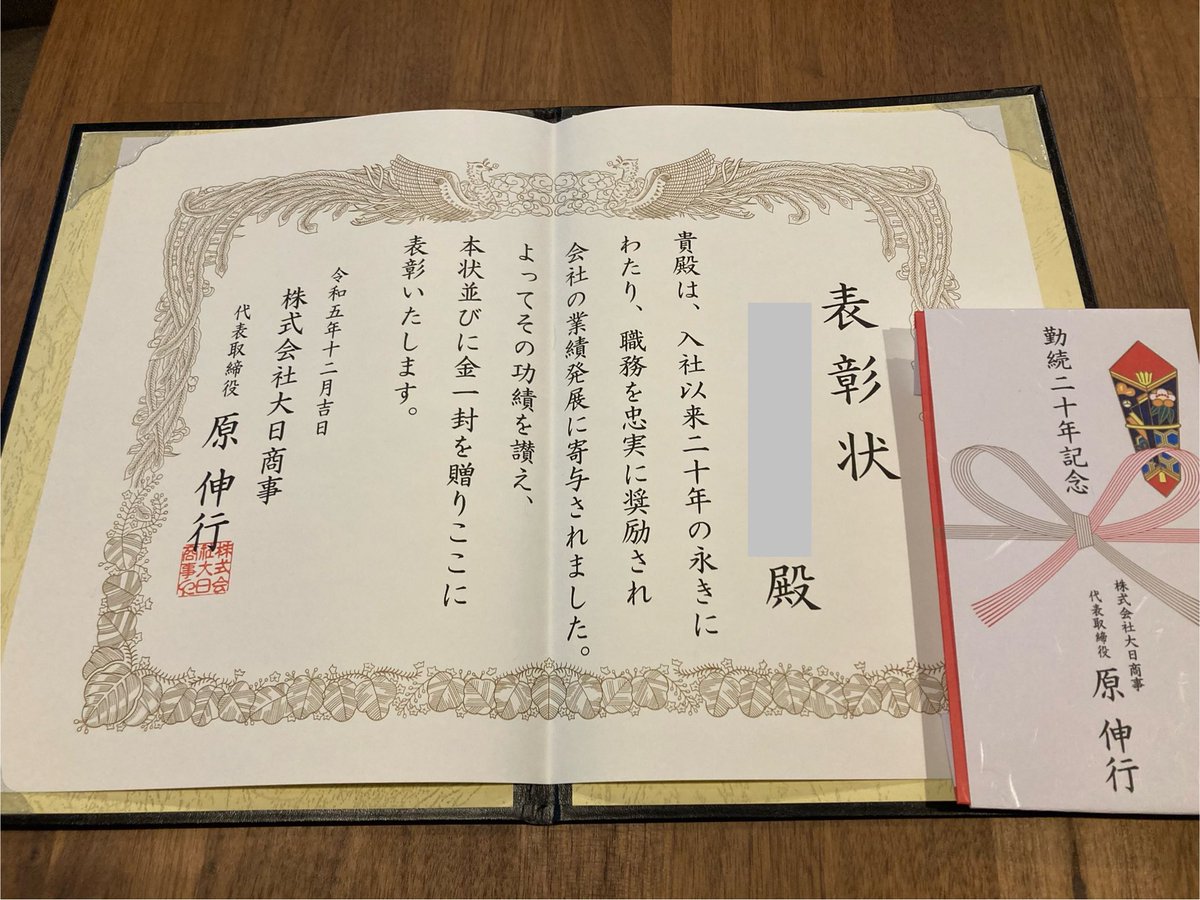 表彰状
殿
貴殿は、入社以来二十年の永きに
わたり、職務を忠実に奨励され
会社の業績発展に寄与されました。
よってその功績を讃え、
本状並びに金一封を贈りここに
表彰いたします。
令和五年十二月吉日
株式会社大日商事
代表取締役 原 伸行
株式会
社大日
商事之
勤続二十年記念
株式会社大日商事
代表取締役 原 伸行